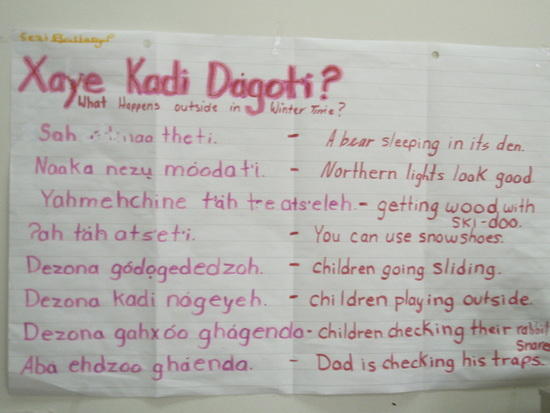 Xaye Kadi Dágotí?
What Happens outside in Winter Time?
Sah theti. - A bear sleeping in its den.
Naaka nezų móodatı. - Northern lights look good
Yahmehchine táh tre atseleh. - getting wood with SKI-doo.
ʔah táh atsetı. - You can use snowshoes.
Dezona gódǫgededzoh. - children going sliding.
Dezona kadi nágeyeh. - children playing outside.
Dezona gahxóo ghágenda - children checking their rabbit Snare
Abá ehdzoo gháenda. - Dad is checking his traps.